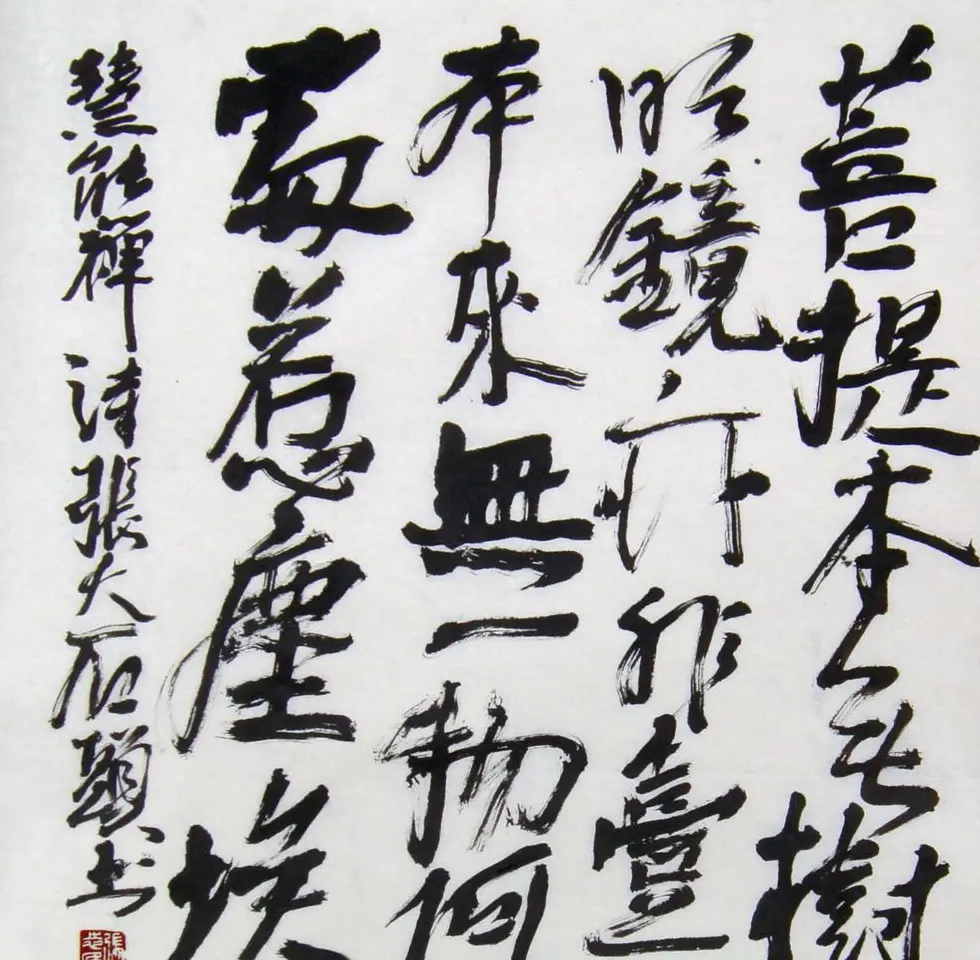 菩提本无樹
明鏡亦非臺
本來無一物何
處惹塵埃
慧能禪詩張大石书